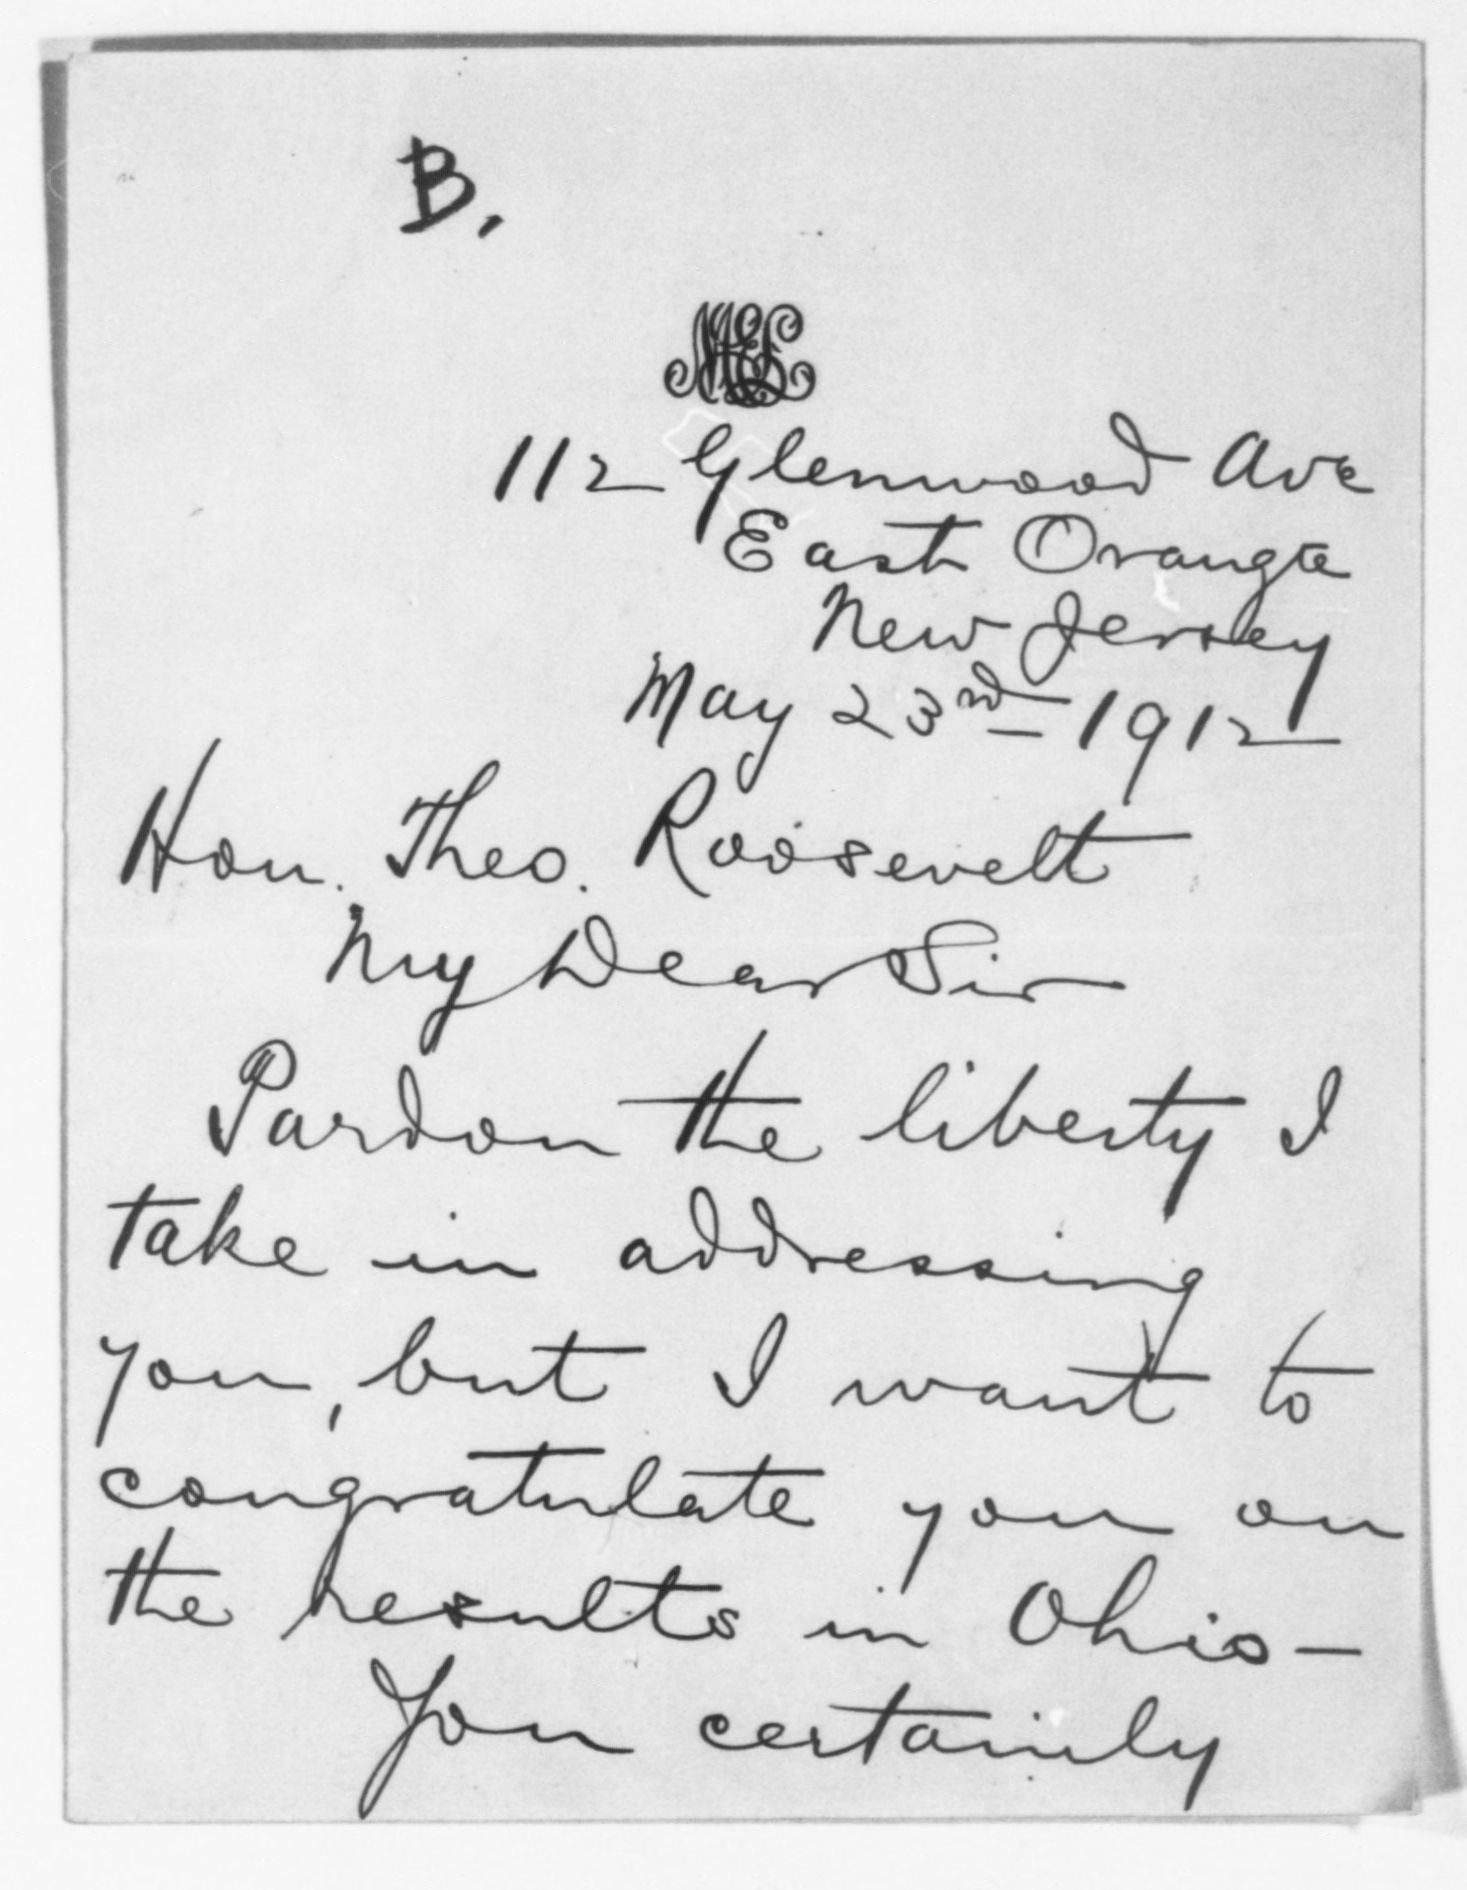 B.
112 Glenwood Ave
East Orange
New Jersey
May 23rd 1912
Hon. Theo. Roosevelt
My Dear Sir
Pardon the liberty I
take in addressing
you, but I want to
congratulate you on
the results in Ohio—
You certainly